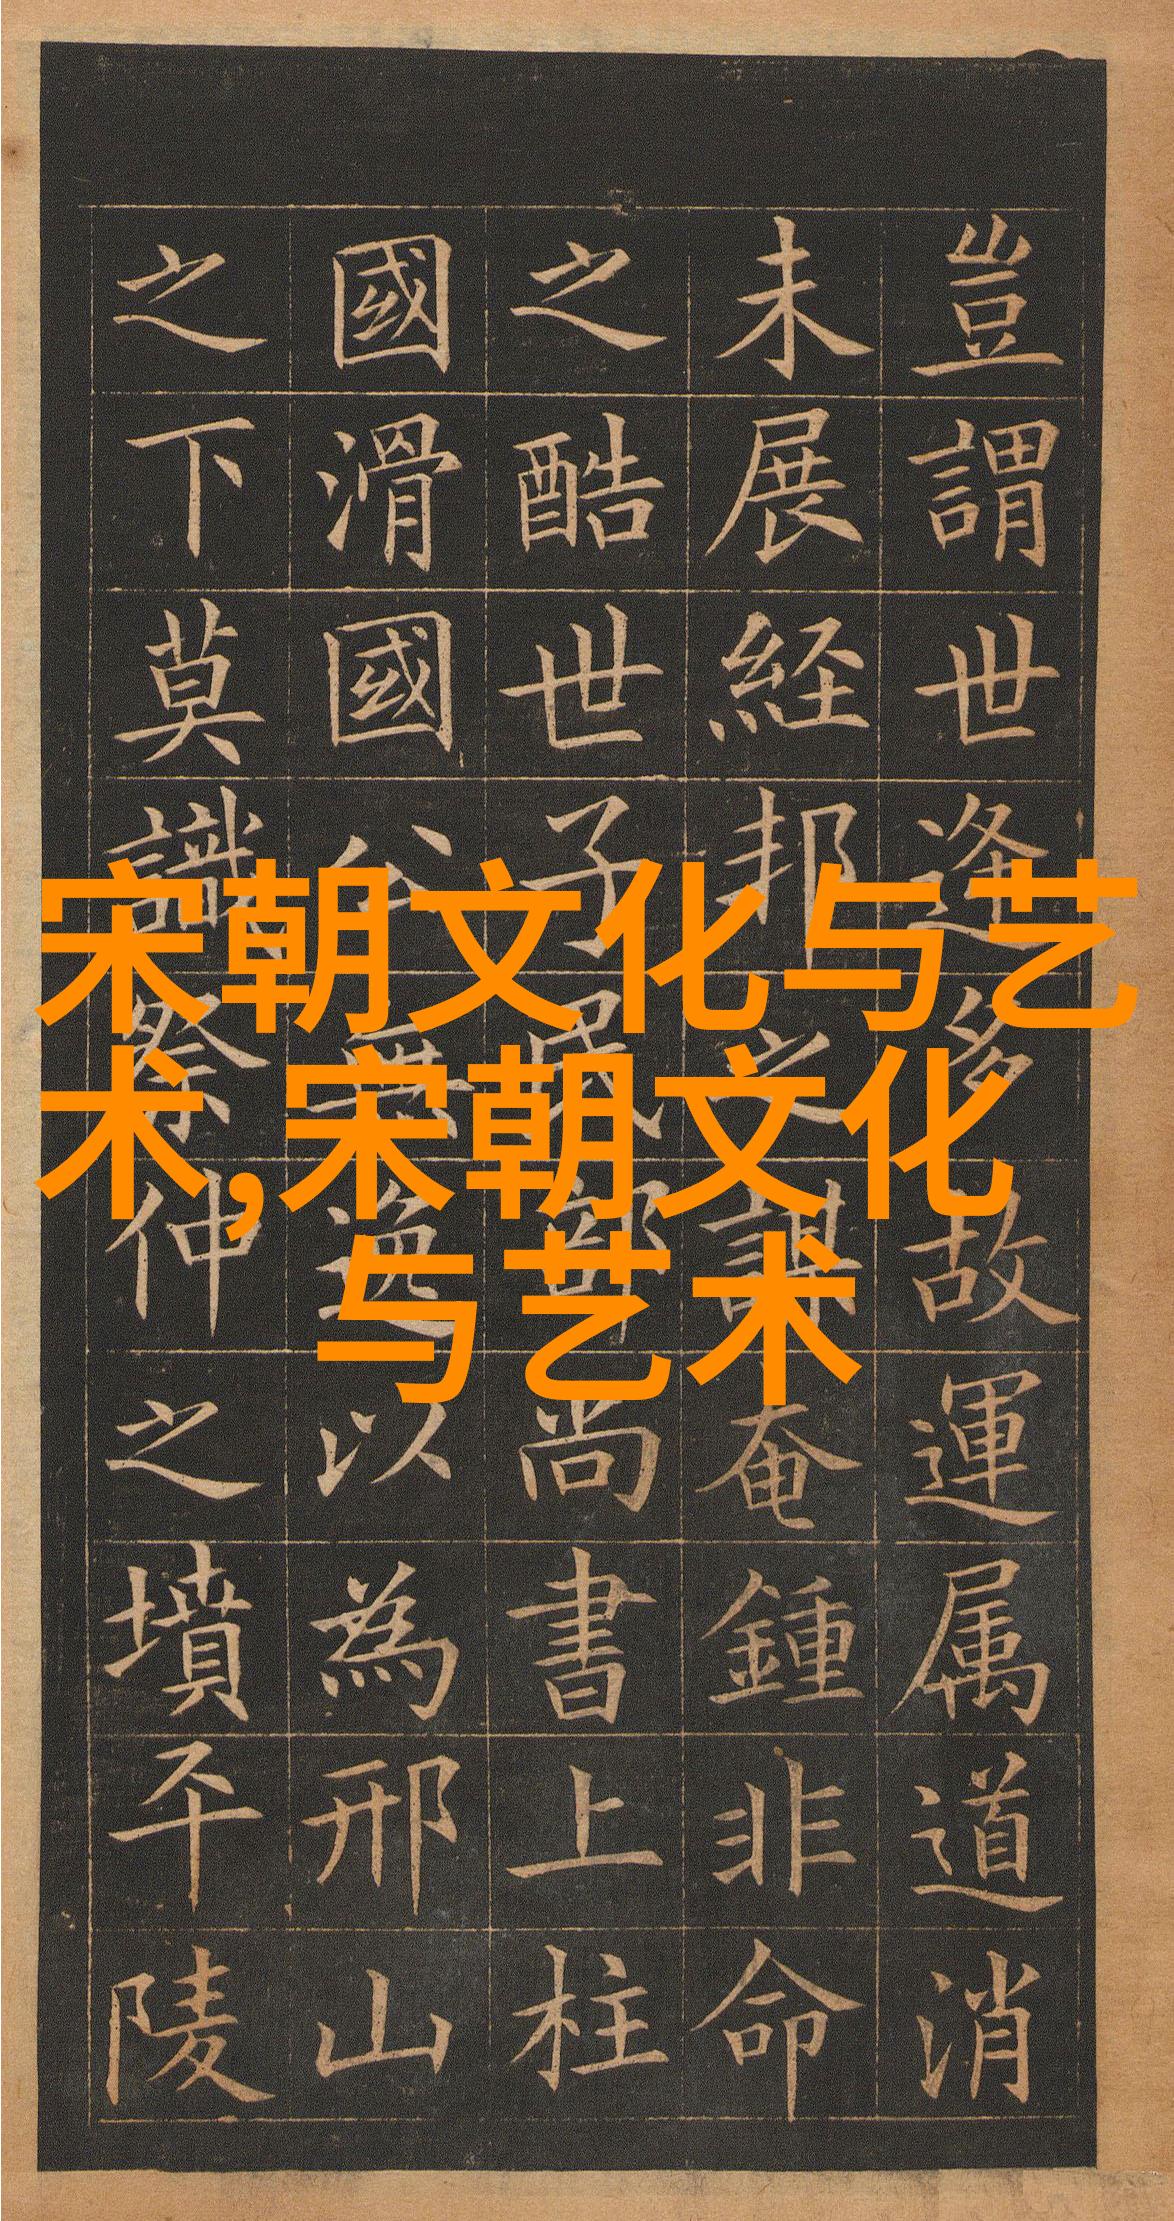 豈謂世逢多故運属道消
未展経邦之謀奄鍾非命
之酷世子民部尚書上柱
國滑國公無逸以為邢山
之下莫識祭伸之墳平陵
宋朝文化与艺
术,宋朝文化
与艺术